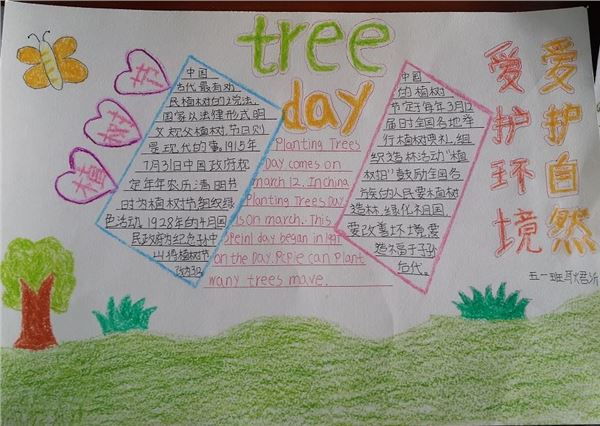 tree
day
植
树
节
中国
古代最有对
民植树的说法.
国家以法律形式明
文规植树节日则
是现代的事,1915年
7月31日中国政府规
定年年农历清明节
时为植树节组织绿
色活动.1928年的4月国
民政府为纪念孙中
山将植树节
改为3
Planting Trees
Day comes on
march 12. In china
Planting Trees Day
ison march. This
day began in
on the Day. PePle can Plant
wany trees mave.
中国
的植树
节定于每年3月12
届时全国各地举
行植树典礼,组
织造林活动"植
树旧"鼓励全国各
方族的人民要植树
造林.绿化祖国.
要改善环境.要
造木福于子孙
后代。
爱护环境
爱护自然
五一班